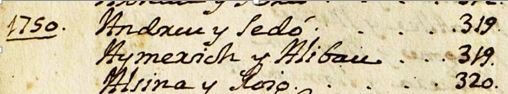 1750. Andreu y Sedó . . . . 319.
Aymerich y Alibau . . . . 319.
Alsina y Roig . . . . 320.